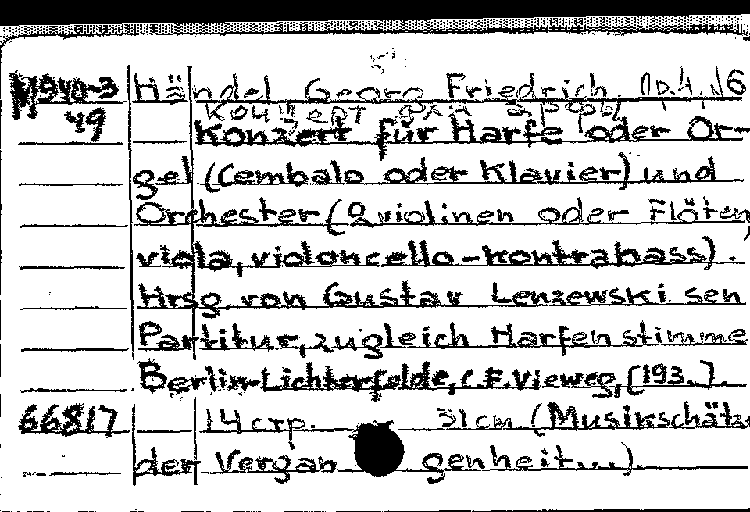 М940-3 Händel Georg Friedrich. Op.4, №6
49 Концерт для арфы
Konzert für Harfe oder Or-
gel (Cembalo oder Klavier) und
Orchester (2 violinen oder Flöten,
viola, violoncello-kontrabass).
Hrsg. von Gustav Lenzewski sen
Partitur, zugleich Harfenstimme
Berlin-Lichterfelde, C.F. Vieweg, [193..].
66817 14 стр. 31 см (Musikschätze
der Vergangenheit...).